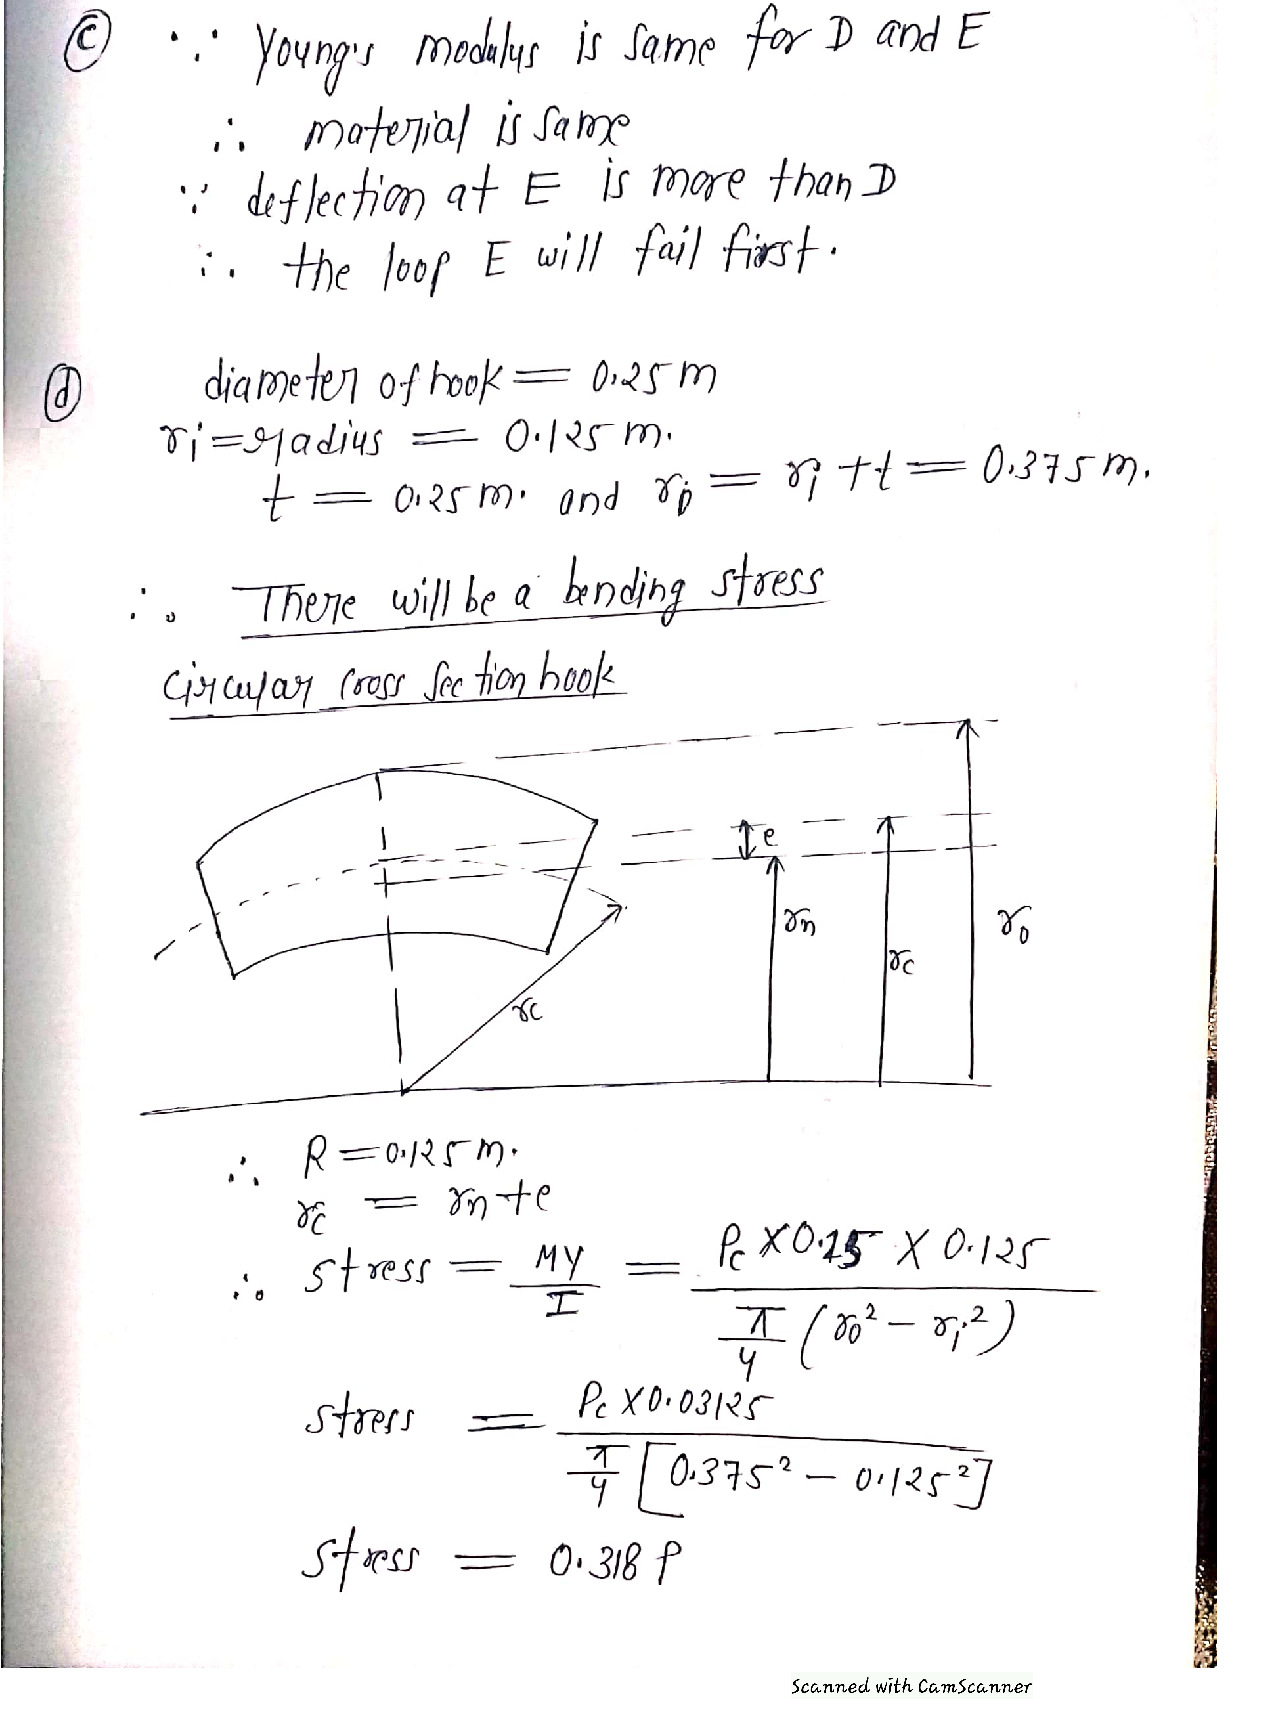 (c) ∵ Young's modulus is same for D and E
∴ material is same
∵ deflection at E is more than D
∴ the loop E will fail first.
(d) diameter of hook = 0.25 m
ri = radius = 0.125 m.
t = 0.25 m. and ro = ri + t = 0.375 m.
∴ There will be a bending stress
Circular cross section hook
e
rn
rc
ro
rc
∴ R = 0.125 m.
rc = rn + e
∴ stress = MY/I = Pc X 0.25 X 0.125 / π/4 (ro² − ri²)
stress = Pc X 0.03125 / π/4 [0.375² − 0.125²]
stress = 0.318 P
Scanned with CamScanner